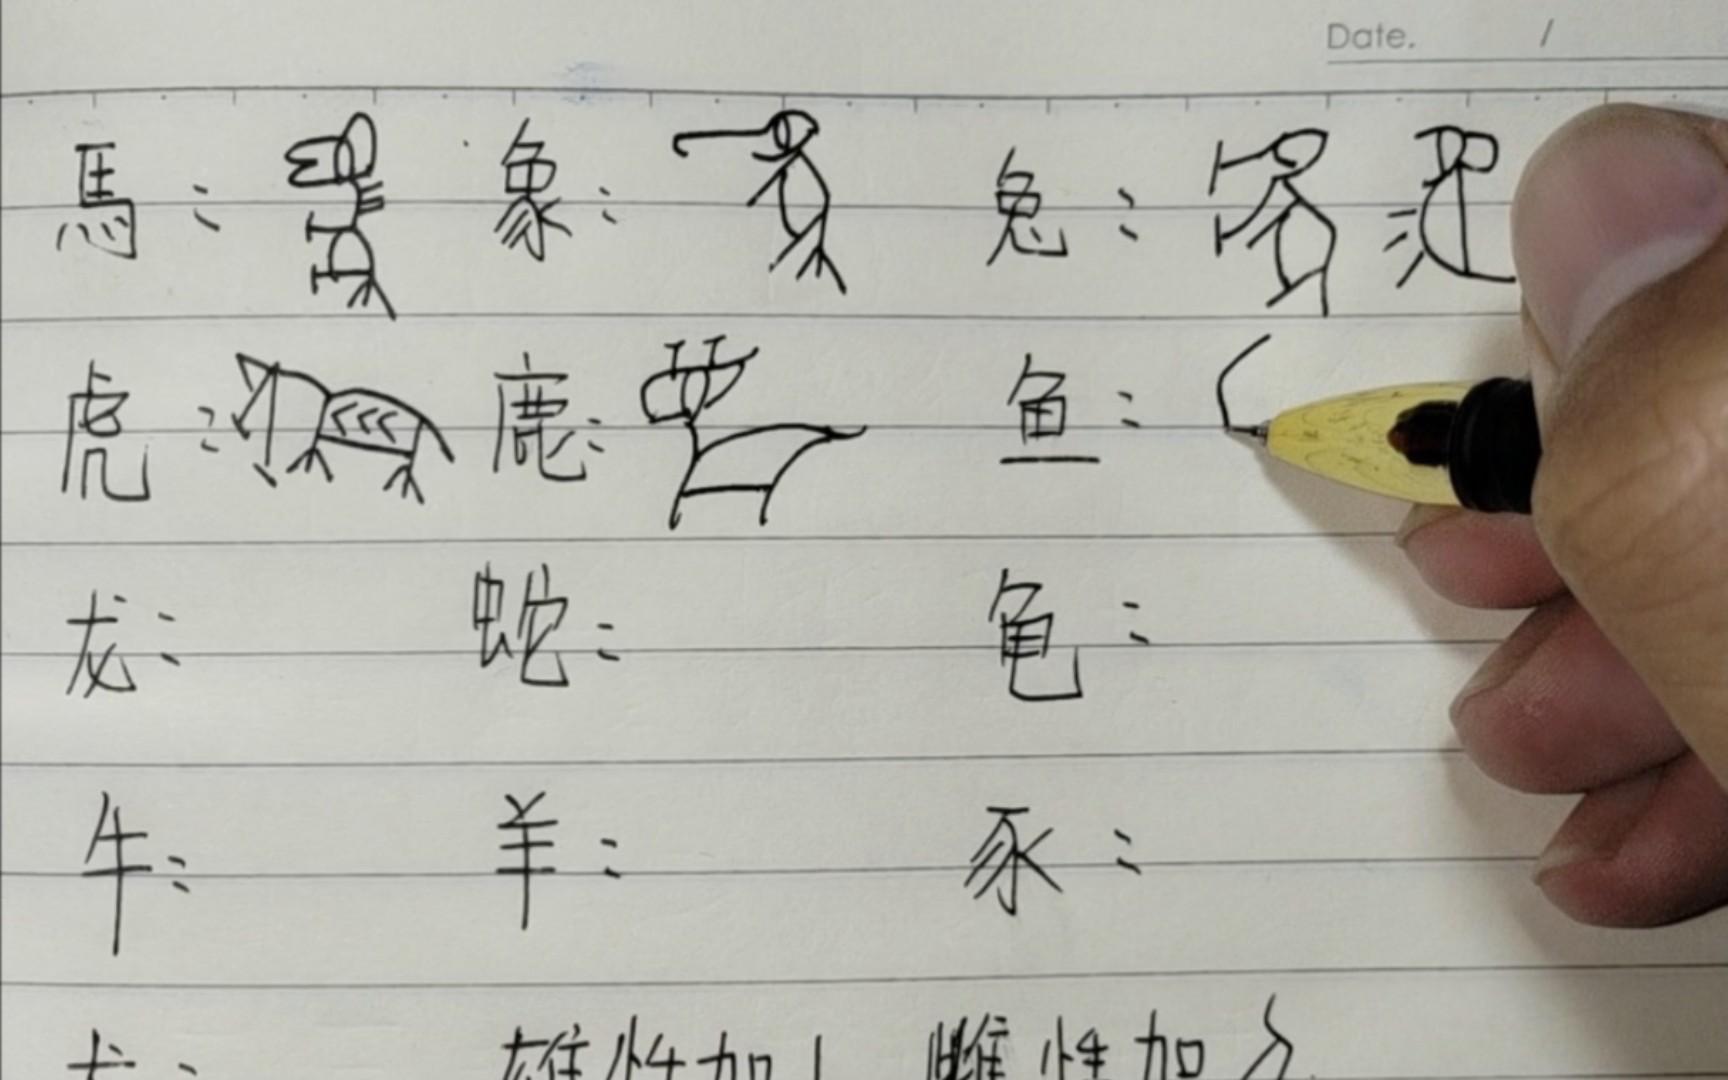 Date. /
馬： 象： 兔：
虎： 鹿： 鱼：
龙： 蛇： 龟：
牛： 羊： 豕：
犬： 雄性加丨 雌性加